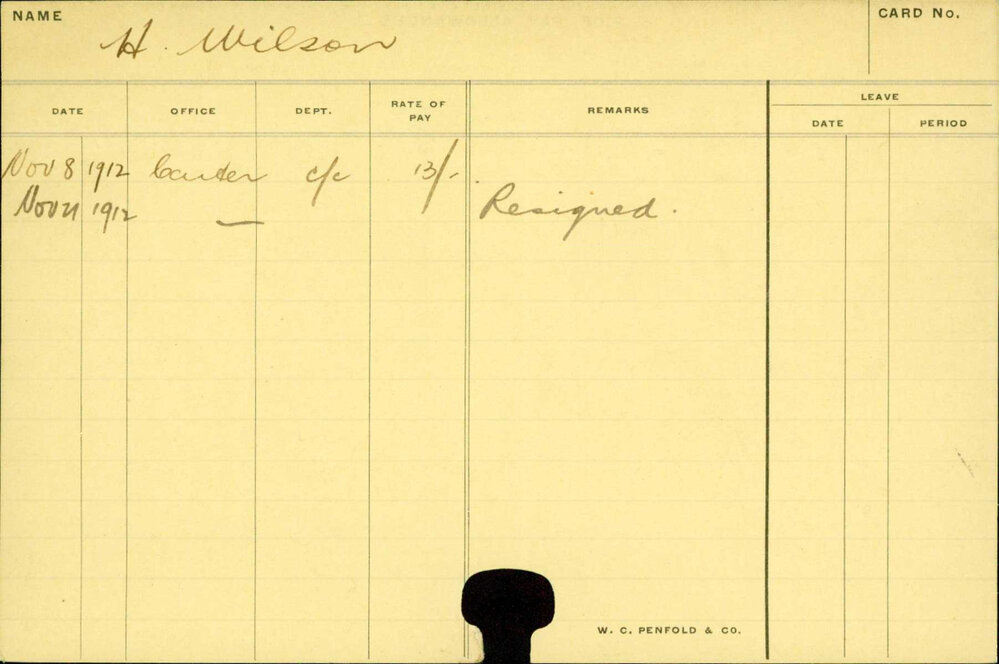 NAME H. Wilson CARD No.
DATE OFFICE DEPT. RATE OF PAY REMARKS LEAVE
DATE PERIOD
Nov 8 1912 c/c 13/-
Nov 21 1912 — Resigned.
W. C. PENFOLD & CO.